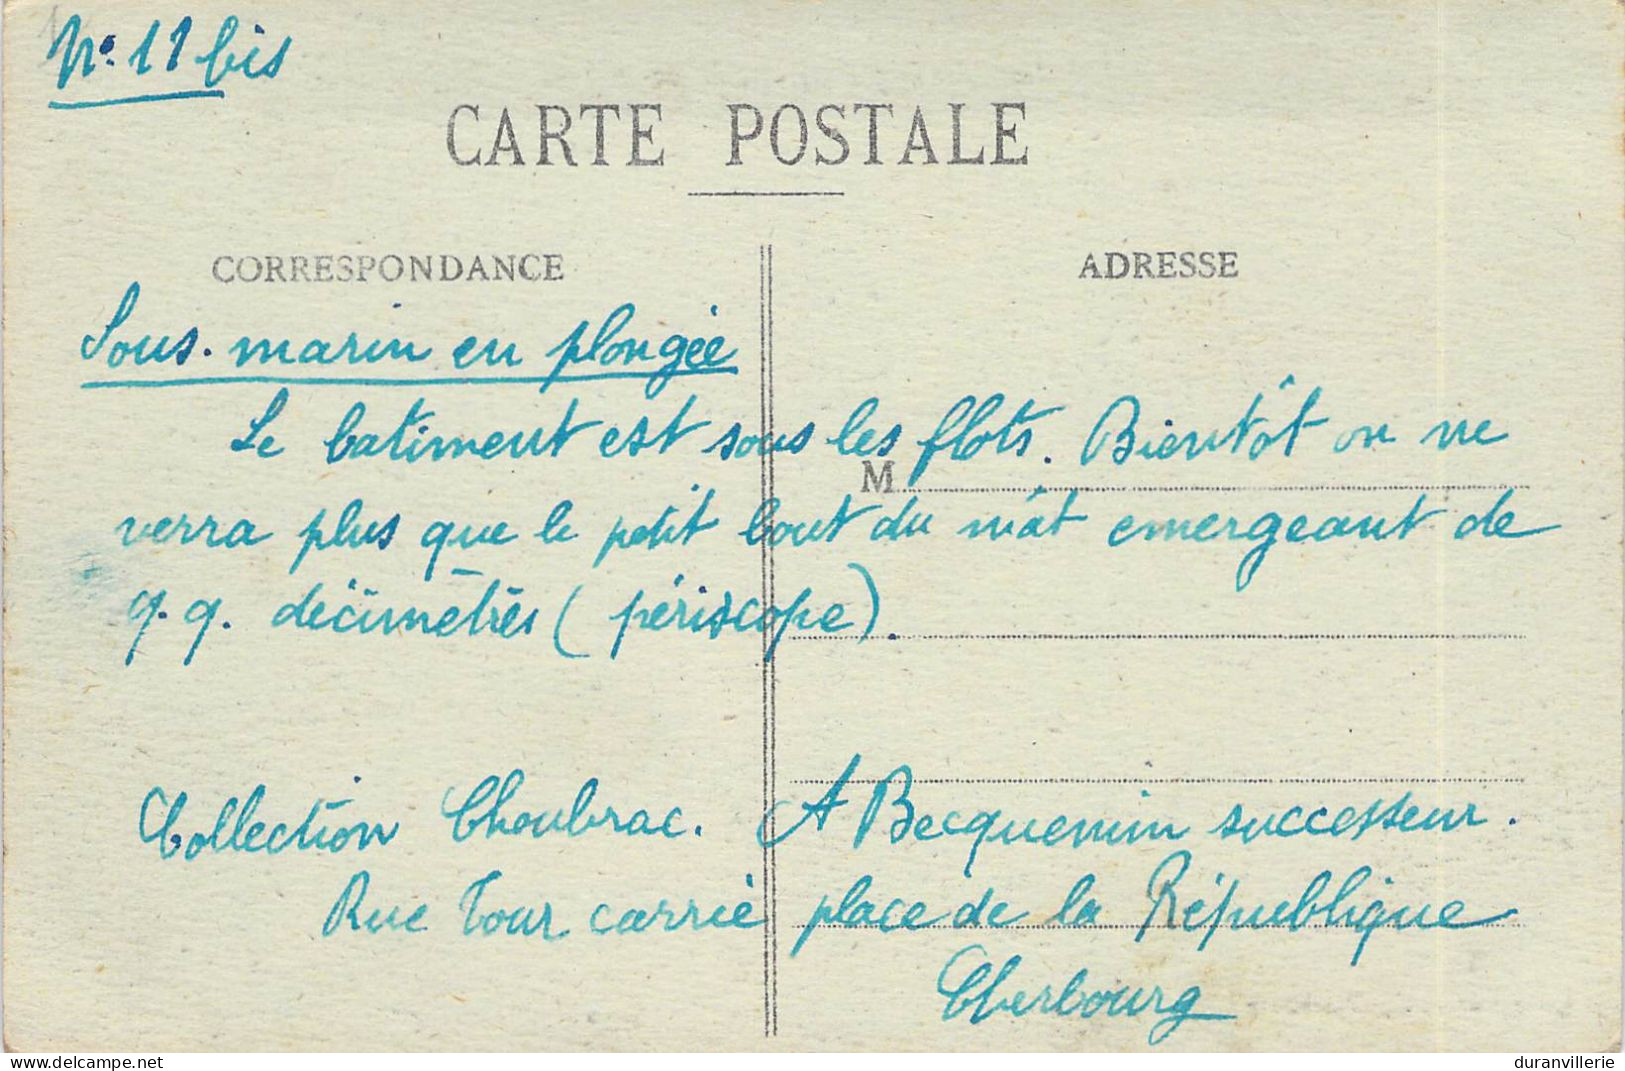 No. 11 bis
CARTE POSTALE
CORRESPONDANCE
ADRESSE
Sous-marin en plongée
Le batiment est sous les flots. Bientôt on ne
M
verra plus que le petit bout du mât emergeant de
q.q. décimètres (périscope).
Collection Choubrac. A Becquemin successeur.
Rue Tour carrée place de la République
Cherbourg
www.delcampe.net
duranvillerie